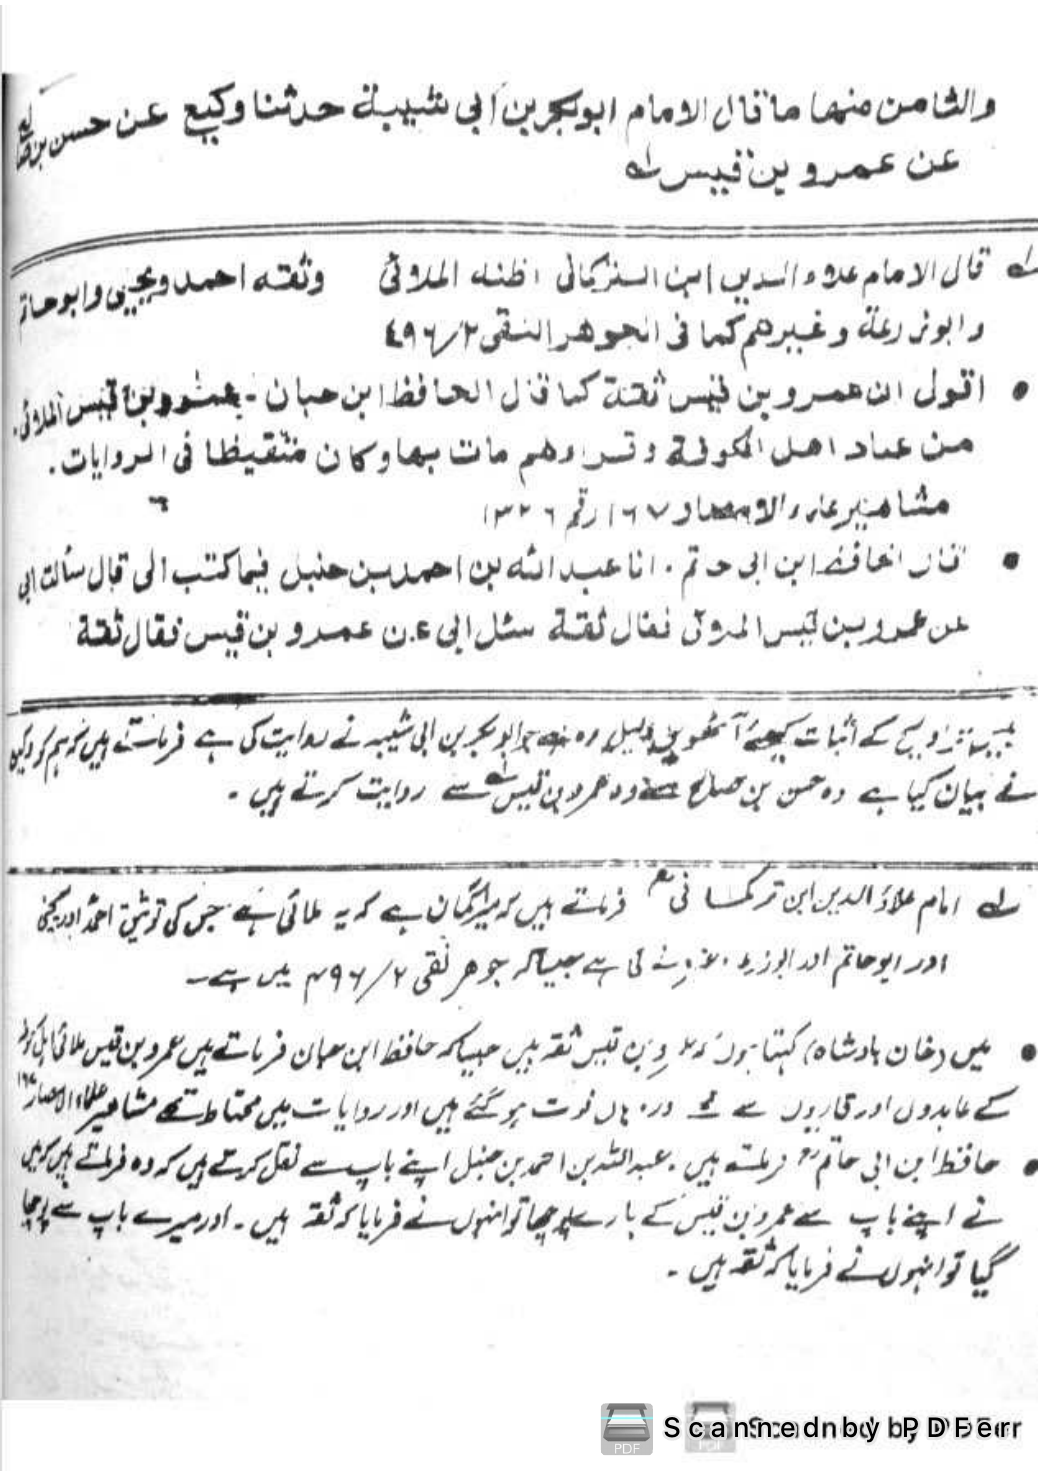 والثامن منها ما قال الامام ابوبكر بن أبي شيبة حدثنا وكيع عن حسن بن صالح
عن عمرو بن قيس له
له قال الامام علاء الدين ابن التركمانى اظنه الملائى وثقه احمد ويحيى وابو حاتم
وابو زرعة وغيرهم كما فى الجوهر النقى ٢/٤٩٦
• اقول ان عمرو بن قيس ثقة كما قال الحافظ ابن حبان - عمرو بن قيس الملائى.
من عباد اهل الكوفة وقراءهم مات بها وكان متقيظا فى الروايات.
مشاهير علماء الامصار ١٦٧ رقم ١٣٢٦
• قال الحافظ ابن ابى حاتم . انا عبد الله بن احمد بن حنبل فيما كتب الى قال سألت ابى
عن عمرو بن قيس الملائى فقال ثقة سئل ابى عن عمرو بن قيس فقال ثقة
بیس تراویح کے اثبات کیلئے آٹھویں دلیل وہ ہے جو ابوبکر بن ابی شیبہ نے روایت کی ہے فرماتے ہیں کہ ہم کو وکیع
نے بیان کیا ہے وہ حسن بن صالح سے وہ عمرو بن قیس لہ سے روایت کرتے ہیں ۔
لہ امام علاؤ الدین ابن ترکمانی فرماتے ہیں کہ میرا گمان ہے کہ یہ ملائی ہے جس کی توثیق احمد اور یحییٰ
اور ابو حاتم اور ابو زرعہ وغیرہ نے کی ہے جیسا کہ جوھر نقی ٢/٤٩٦ میں ہے۔
• میں (خان بادشاہ) کہتا ہوں کہ عمرو بن قیس ثقہ ہیں جیسا کہ حافظ ابن حبان فرماتے ہیں عمرو بن قیس ملائی اہل کوفہ
کے عابدوں اور قاریوں سے تھے اور وہاں فوت ہو گئے ہیں اور روایات میں محتاط تھے مشاھیر علماء الامصار ١٦٧
• حافظ ابن ابی حاتم فرماتے ہیں . عبد اللہ بن احمد بن حنبل اپنے باپ سے نقل کرتے ہیں کہ وہ فرماتے ہیں کہ میں
نے اپنے باپ سے عمرو بن قیس کے بارے پوچھا تو انہوں نے فرمایا کہ ثقہ ہیں ۔ اور میرے باپ سے پوچھا
گیا تو انہوں نے فرمایا کہ ثقہ ہیں ۔
Scanned by PDFer